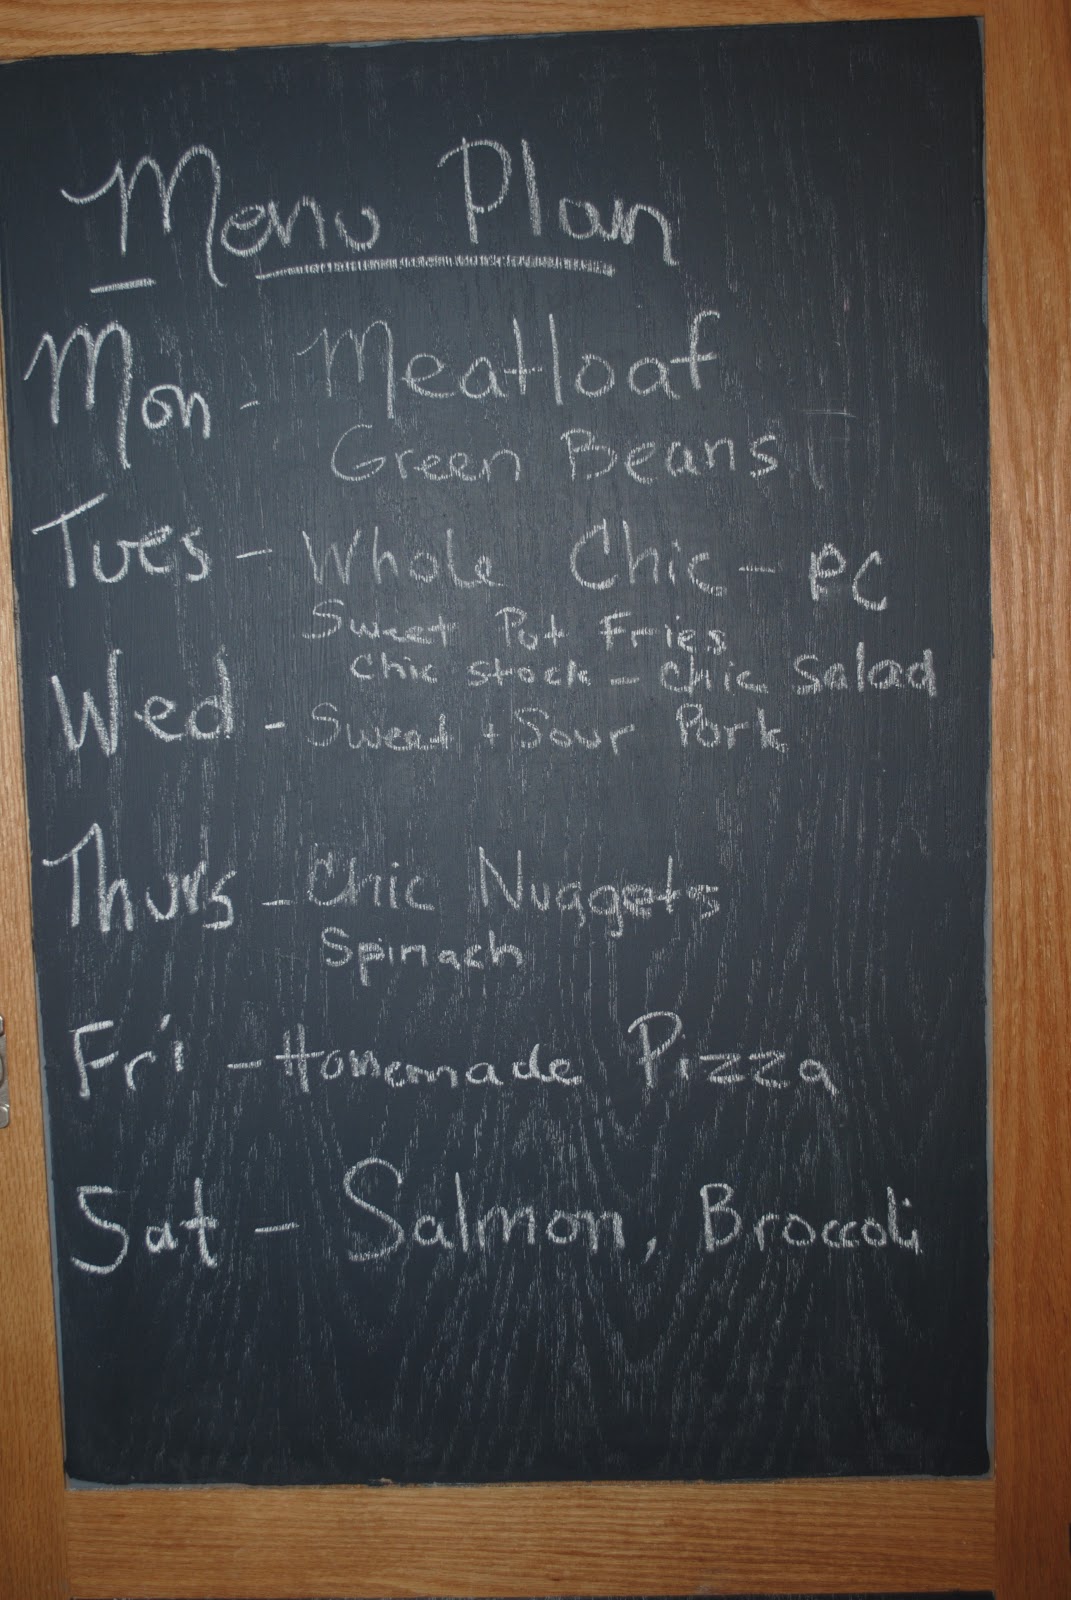 Menu Plan
Mon - Meatloaf
Green Beans
Tues - Whole Chic - PC
Sweet Pot Fries
Chic Stock - Chic Salad
Wed - Sweet + Sour Pork
Thurs - Chic Nuggets
Spinach
Fri - Homemade Pizza
Sat - Salmon, Broccoli